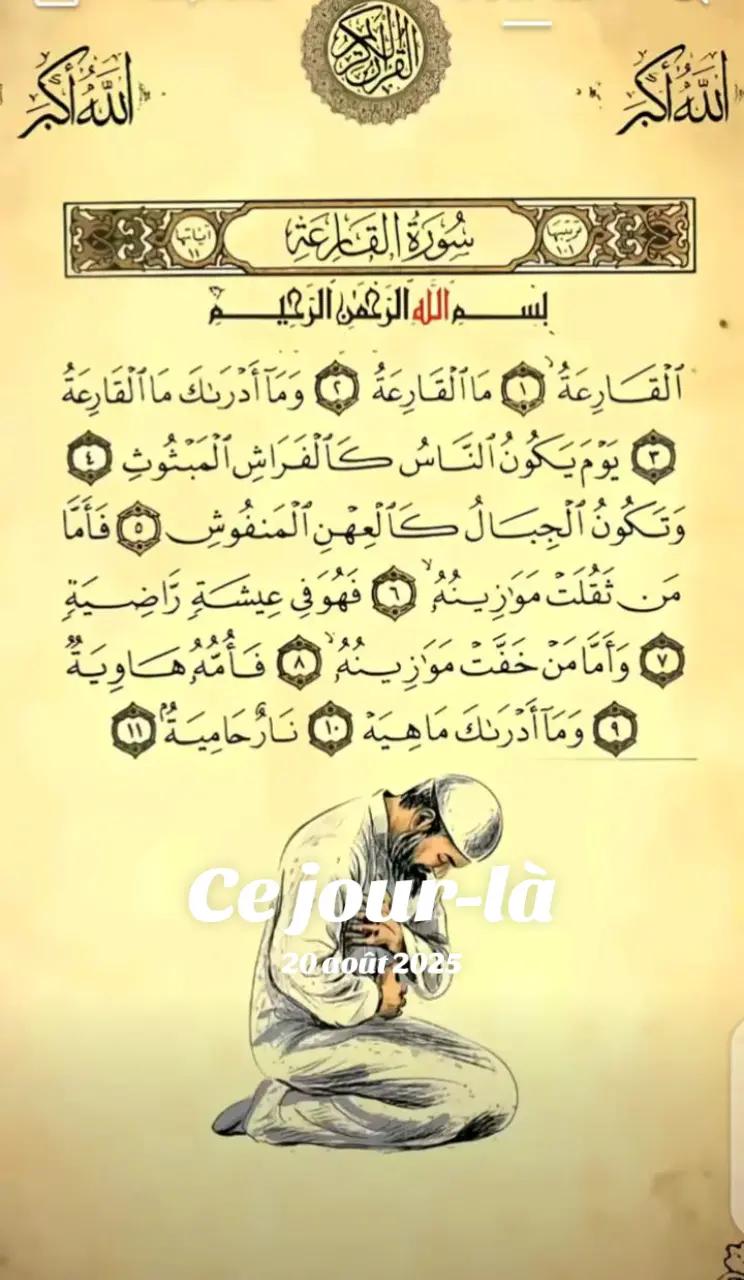 القرآن الكريم
الله أكبر
الله أكبر
ترتيبها ١٠١ سُورَةُ القَارِعَةِ آياتها ١١
بسم الله الرحمن الرحيم
ٱلْقَارِعَةُ ١ مَا ٱلْقَارِعَةُ ٢ وَمَآ أَدْرَىٰكَ مَا ٱلْقَارِعَةُ
٣ يَوْمَ يَكُونُ ٱلنَّاسُ كَٱلْفَرَاشِ ٱلْمَبْثُوثِ ٤
وَتَكُونُ ٱلْجِبَالُ كَٱلْعِهْنِ ٱلْمَنفُوشِ ٥ فَأَمَّا
مَن ثَقُلَتْ مَوَٰزِينُهُۥ ٦ فَهُوَ فِى عِيشَةٍ رَّاضِيَةٍ
٧ وَأَمَّا مَنْ خَفَّتْ مَوَٰزِينُهُۥ ٨ فَأُمُّهُۥ هَاوِيَةٌ
٩ وَمَآ أَدْرَىٰكَ مَا هِيَهْ ١٠ نَارٌ حَامِيَةٌۢ ١١
Ce jour-là
20 août 2025